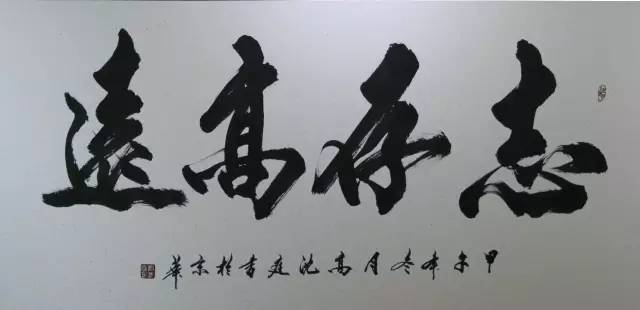 志存高遠
甲午年冬月高沈庭書於京華